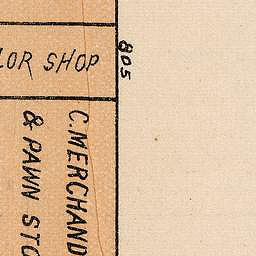 LOR SHOP
805
C. MERCHAND
& PAWN STO